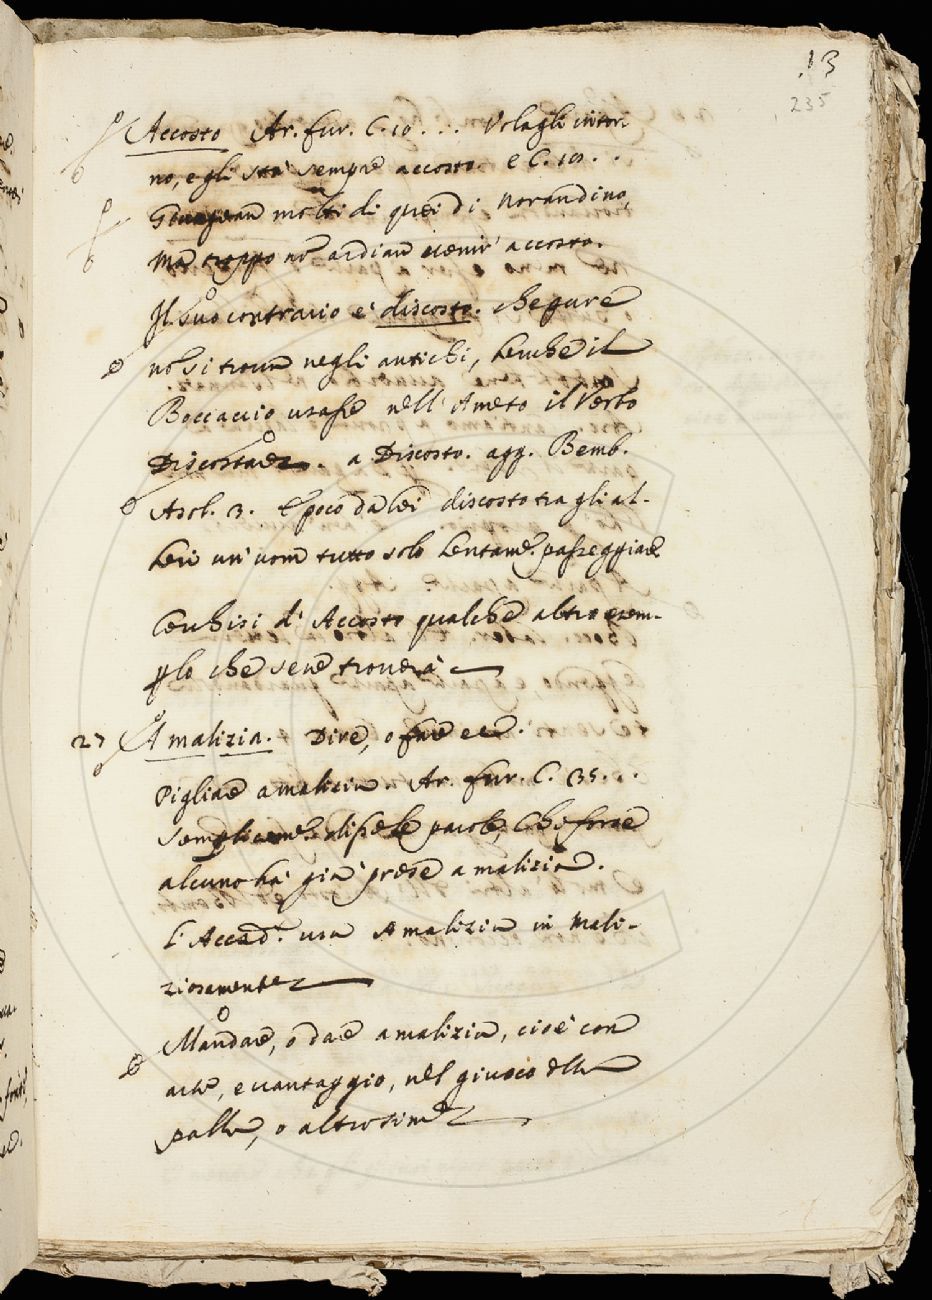 13
235
Accosto Ar. fur. C. 10 . . . Volagli intor-
no, e gli sta sempre accosto e C. 10 . .
Giungean molti di quei di Norandino,
Ma troppo nõ ardian venir' accosto.
Il suo contrario e' discosto. che pure
nõ si trova negli antichi, benche il
Boccaccio usasse nell' Ameto il Verbo
Discostare. a Discosto. agg. Bemb.
Asol. 3. E poco da lei discosto tra gli al-
beri un' uom tutto solo lentamẽ. passeggiare
Cerchisi d' Accosto qualche altro esem-
plo che se ne troverà
27 A malizia. Dire, o fare ec.
Pigliare a malizia Ar. fur. C. 35. . .
Semplicemẽ. disse le parole, che forse
alcuno ha già prese a malizia.
L' Accad.ª usa A malizia in Mali-
ziosamente
Mandare, o dare a malizia, cioè con
arte, e vantaggio, nel giuoco della
palla, o altro sim.